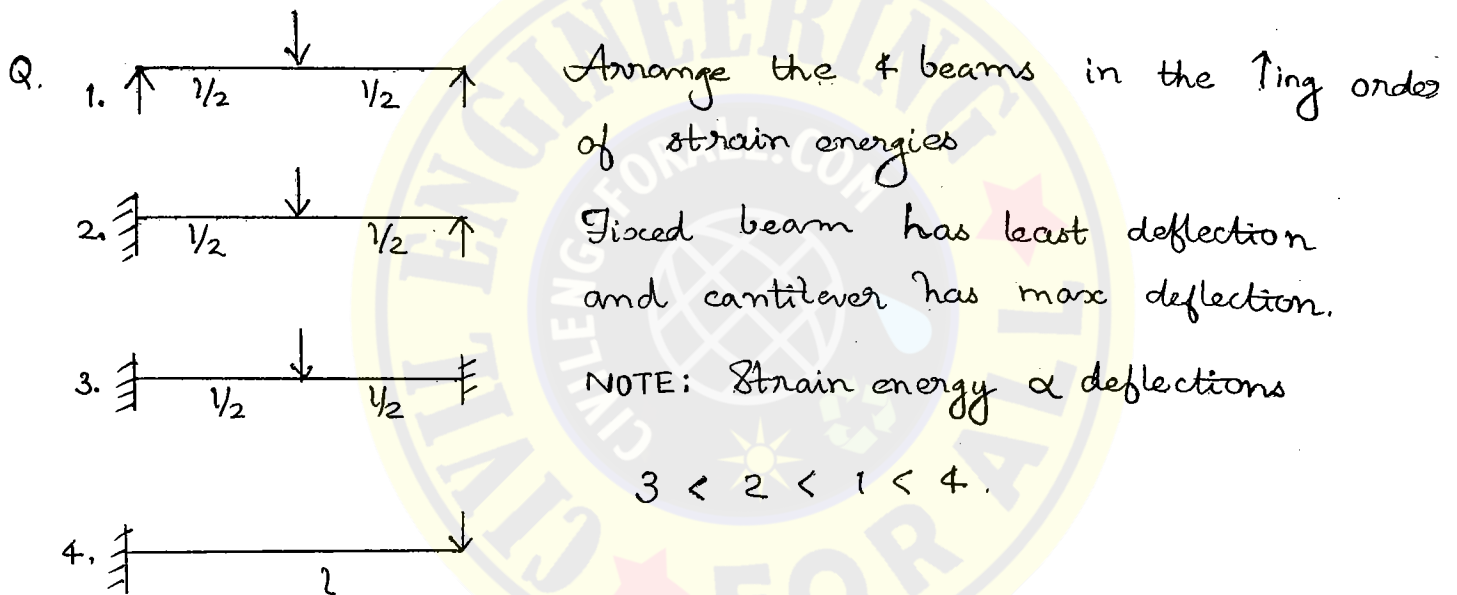 Q. 1. l/2 l/2 Arrange the 4 beams in the ↑ing order
of strain energies
2. l/2 l/2 Fixed beam has least deflection
and cantilever has max deflection.
3. l/2 l/2 NOTE: Strain energy α deflections
3 < 2 < 1 < 4.
4. l
CIVIL ENGINEERING FOR ALL
CIVILENGGFORALL.COM